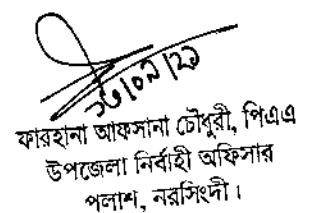 ২৬/০৯/২১
ফারহানা আফসানা চৌধুরী, পিএএ
উপজেলা নির্বাহী অফিসার
পলাশ, নরসিংদী।